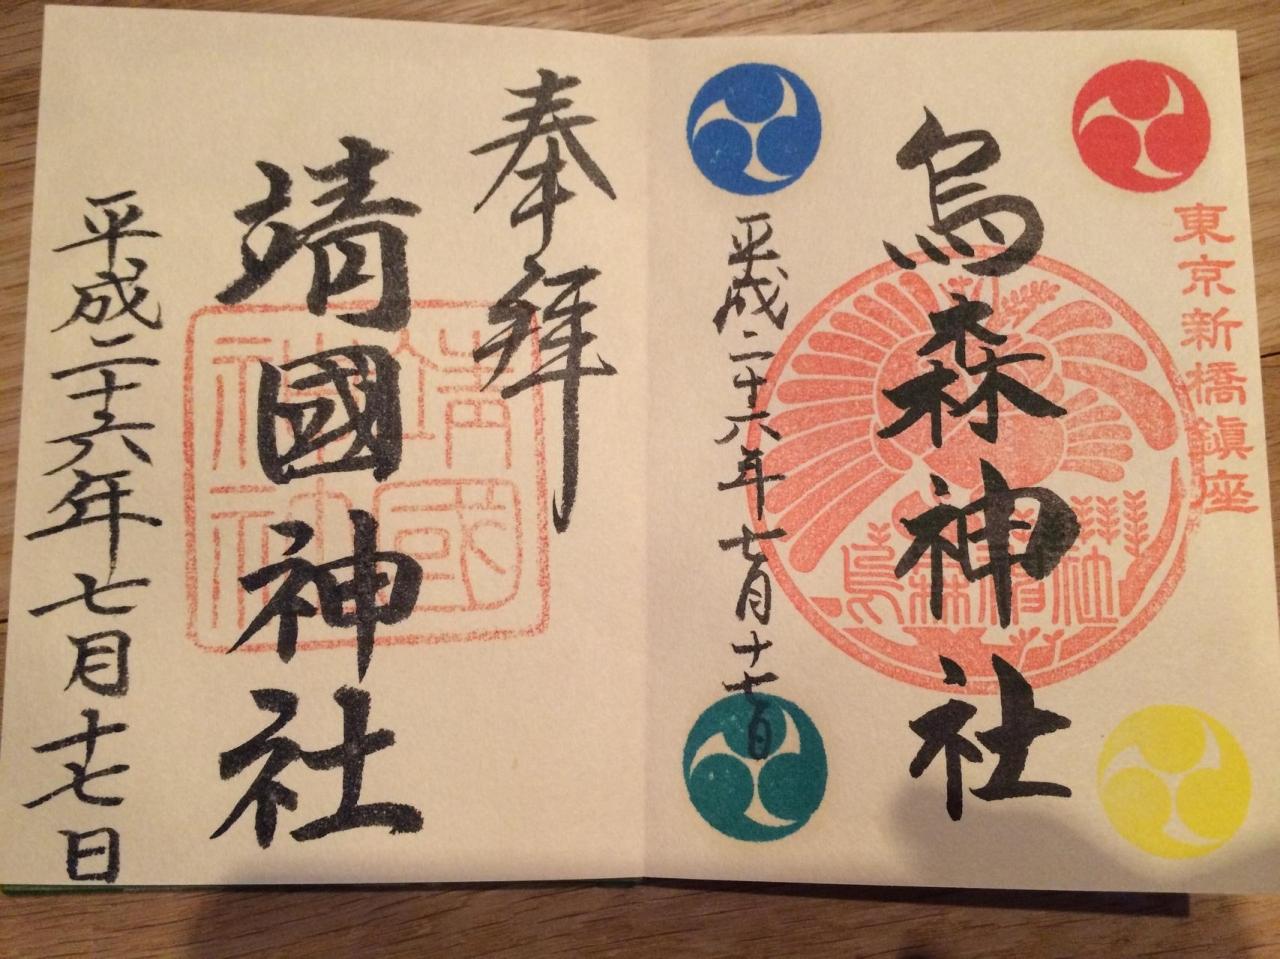 東京新橋鎮座
烏森神社
烏森神社
平成二十六年七月十七日
奉拝
靖國神社
靖國神社
平成二十六年七月十七日